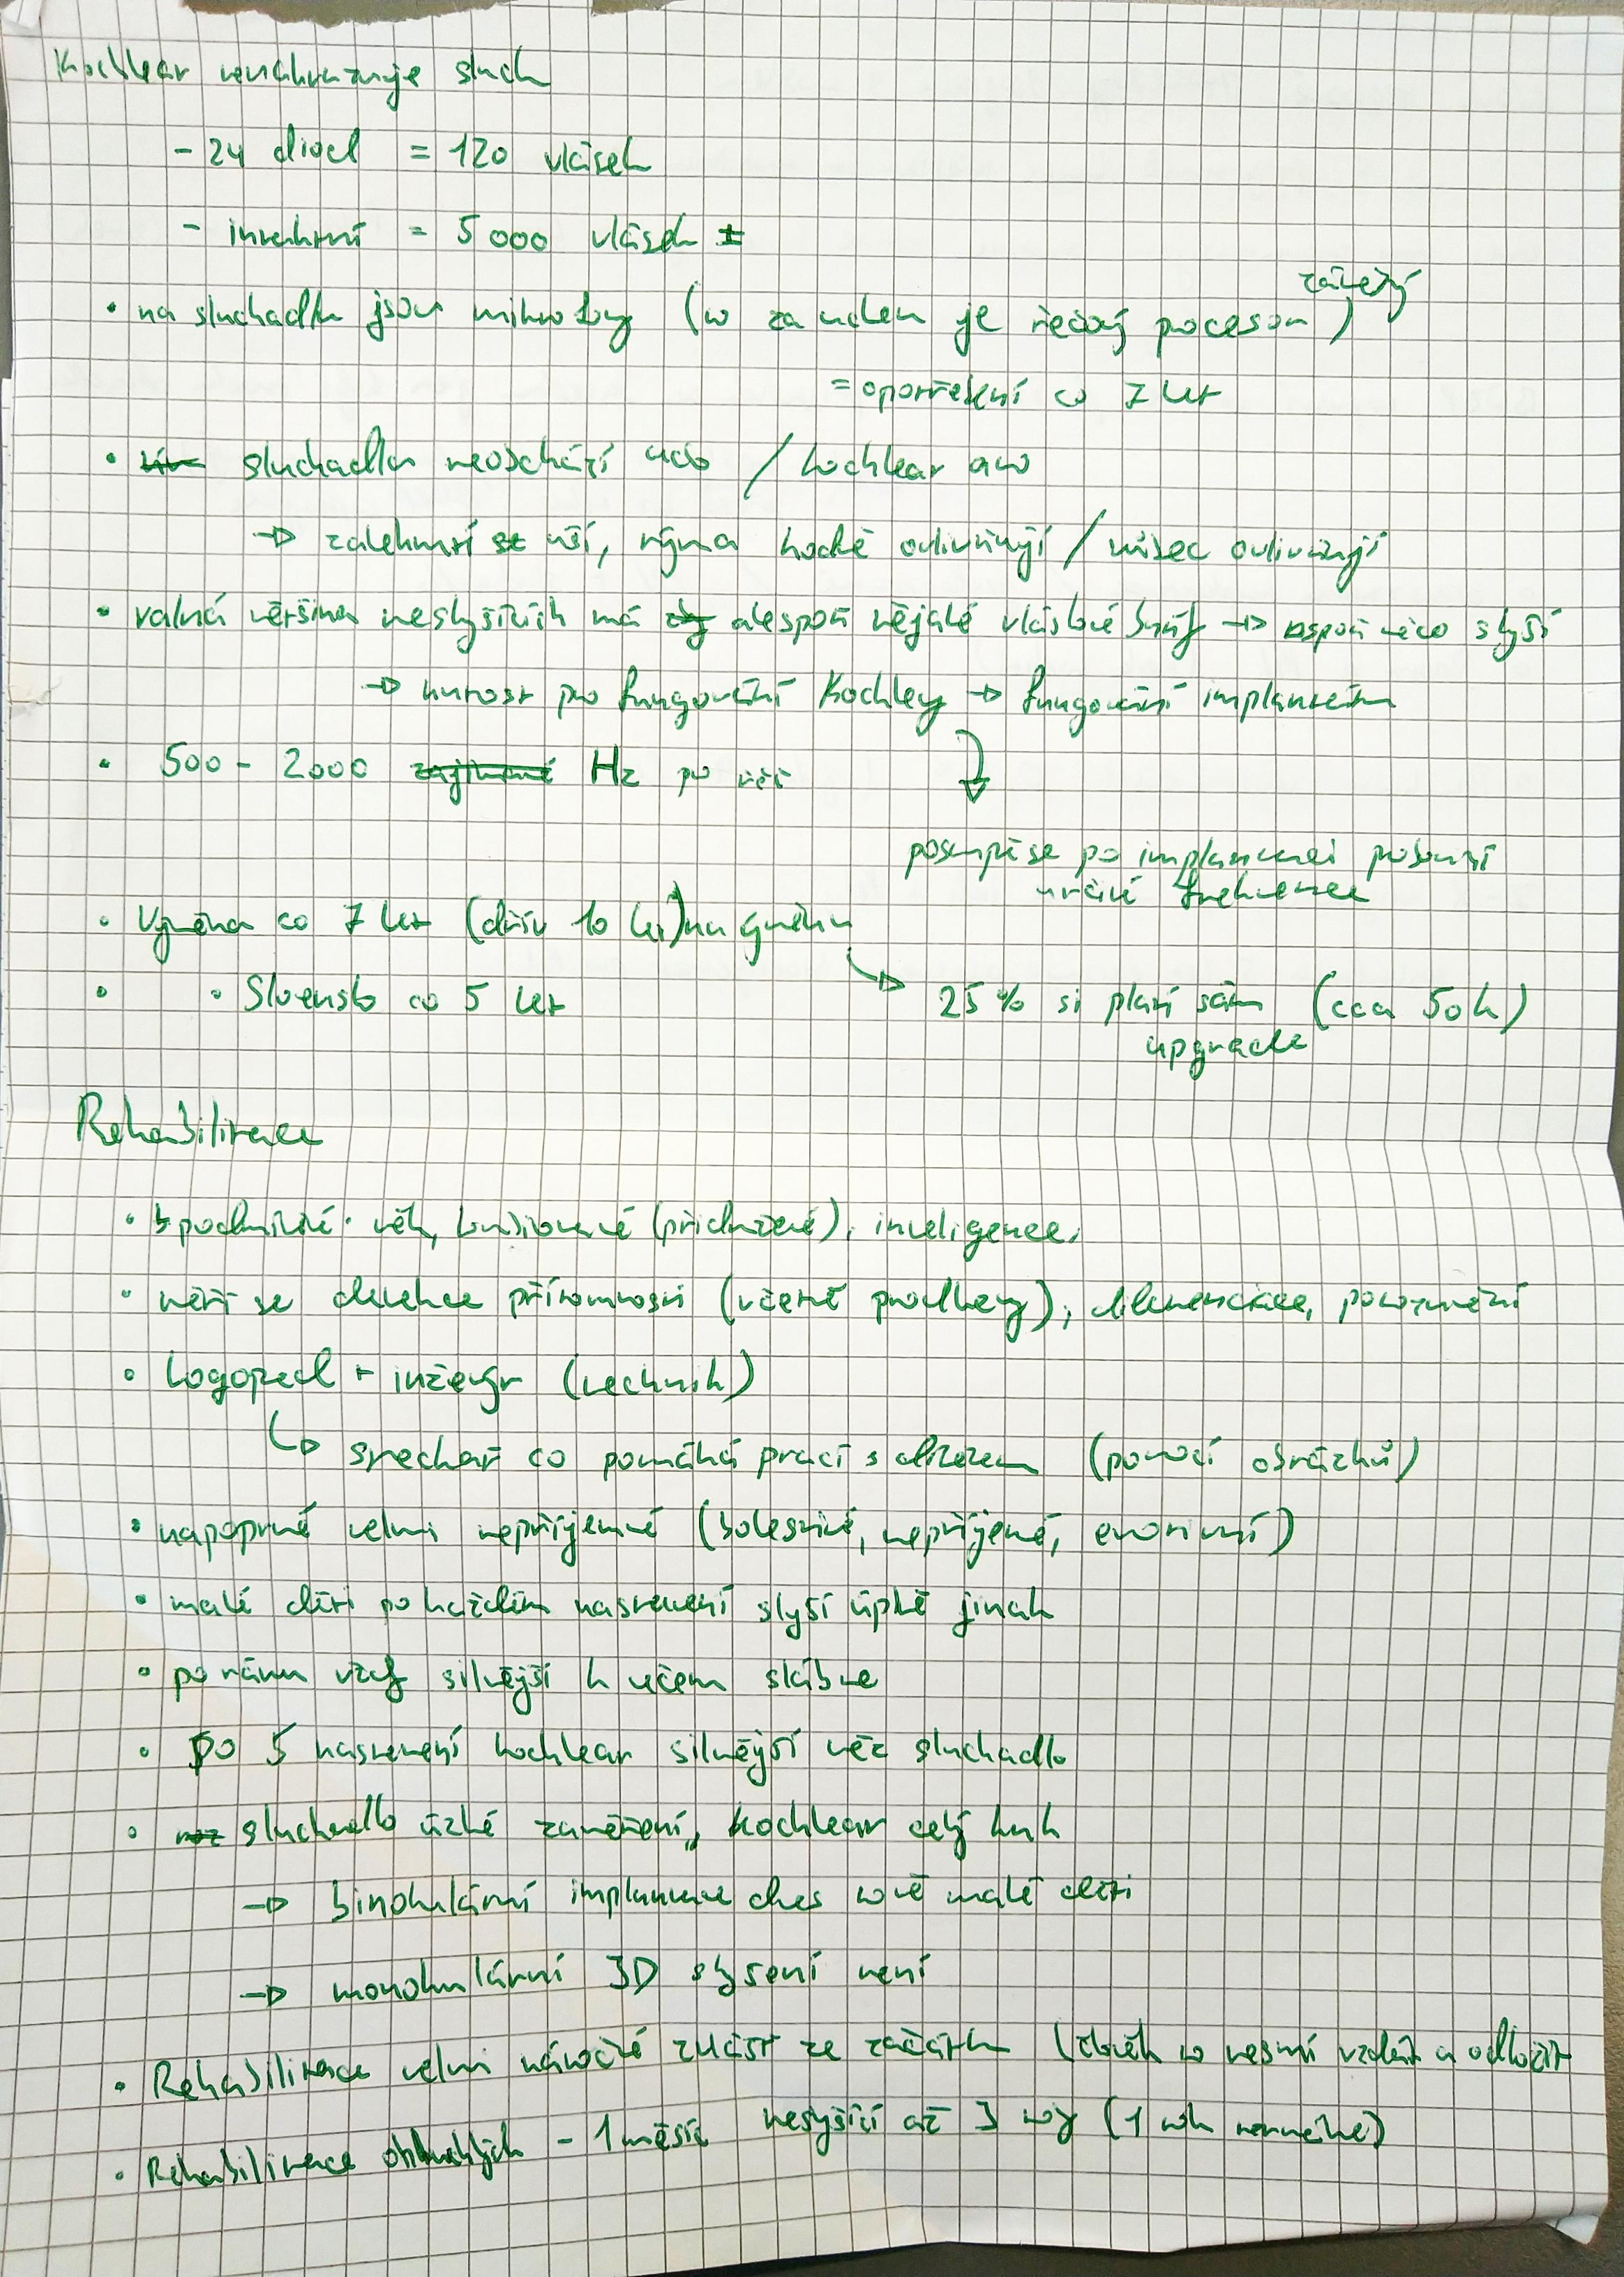 Kochlear nenahrazuje sluch
- 24 diod = 120 vlásek
- intaktní = 5 000 vlásek ±
• na sluchadlu jsou mikrofony (to za uchem je řečový procesor) závěsný
= opotřebení co 7 let
• sluchadlo neobchází ucho / kochlear ano
→ zalehnutí uší, rýma hodně ovlivňují / vůbec ovlivňují
• valná většina neslyšících má alespoň nějaké vláskové buňky → aspoň něco slyší
→ nutost pro fungování Kochley → fungování implantátu
• 500 - 2000 Hz po řeč
postupně se po implantaci pobouzí určité frekvence
• Výměna co 7 let (dřív 10 let) na
• Slovensko co 5 let
→ 25 % si platí sám (cca 50k)
upgrade
Rehabilitace
• podmínké: věk, kombinované (přidružené), inteligence,
• měří se detekce přítomnosti (včetně prodlevy), diferenciace, porozumění
• Logoped + inženýr (technik)
↳ snechař co pomáhá práci s dítětem (pomocí obrázků)
• napoprvé velmi nepříjemné (bolestivé, nepříjemé, emotivní)
• malé děti po každém nastavení slyší úplně jinak
• po ránu vždy silnější k večeru slábne
• Po 5 nastavení kochlear silnější něž sluchadlo
• sluchadlo úzké zaměření, kochlear celý kruh
→ binokulární implantace dnes malé děti
→ monokulární 3D slyšení není
• Rehabilitace velmi náročné zvlášť ze začátku (člověk to nesmí vzdát a odložit
• Rehabilitace ohluchlých - 1 měsíc neslyšící až 3 roky (1 rok normálně)